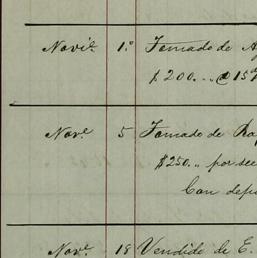 Novi.e 1.o Tomado de A
$200... @ 15d
Nov.e 5 Tomado de Ra
$250.. por see
Con depo
Nov.e 18 Vendido de E.